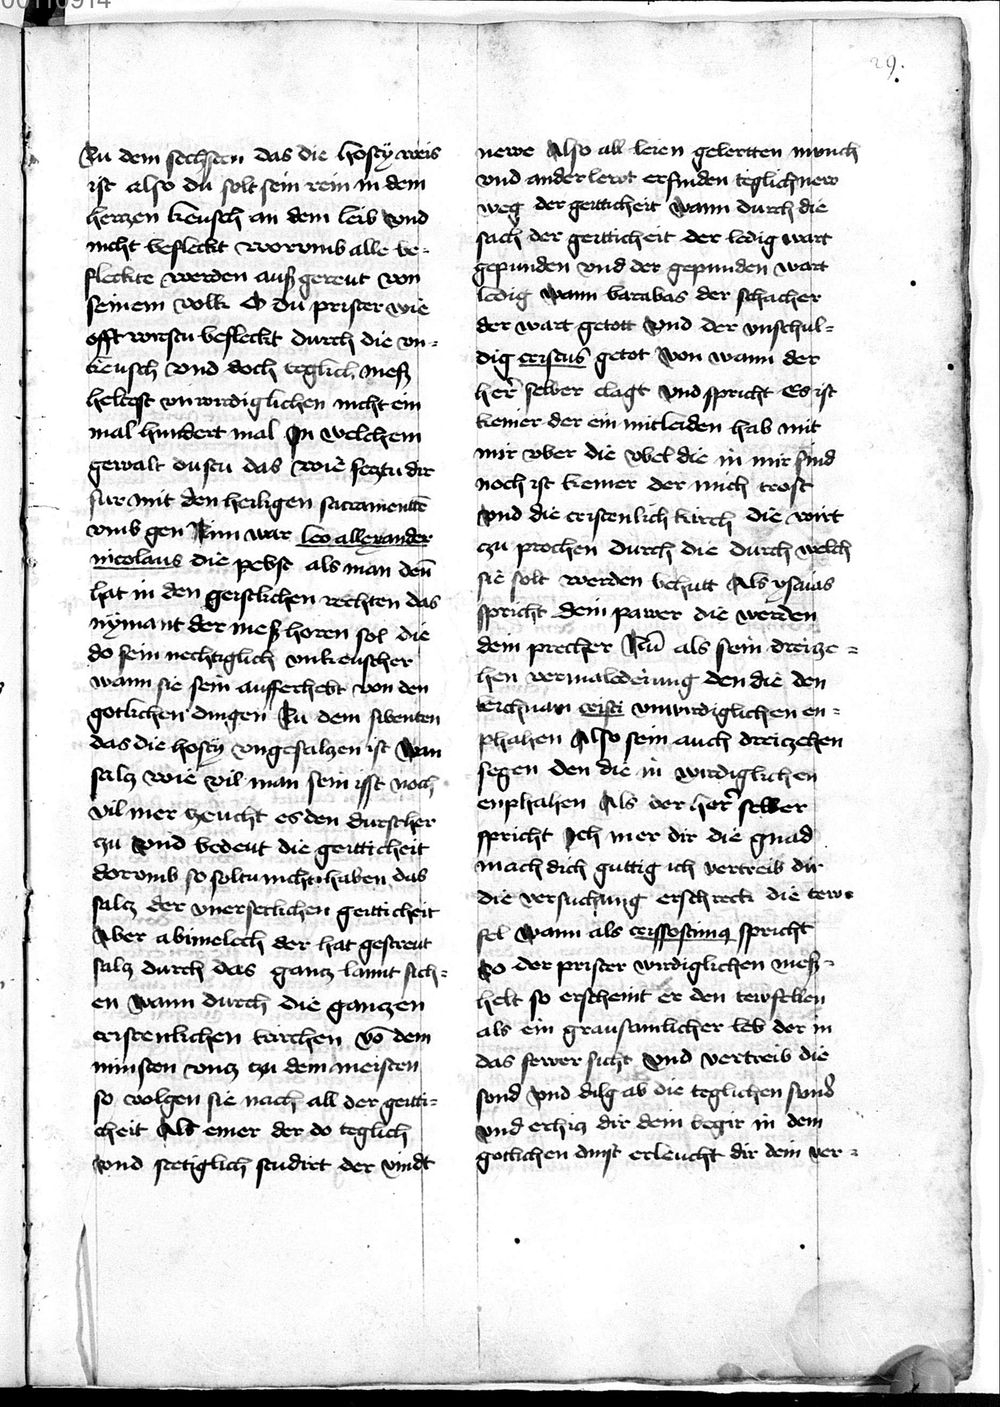 00110914
29.
Zu dem sechsten das die hosty weis
ist also du solt sein rein in dem
hertzen keusch an dem leib vnd
nicht befleckt worvmb alle be-
fleckte werden auß gereut von
seinem volk O du prister wie
offt wirstu befleckt durch die vn-
keusch vnd doch teglich meß
heltest vnwirdiglichen nicht ein
mal hundert mal In welchem
gewalt dustu das wie setztu dir
fur mit den heiligen sacramenten
vmb gen Nim war leo allexander
nicolaus die pebst als man den
hat in den geistlichen rechten das
nymant der meß horen sol die
do sein nechtiglich vnkeuscher
wann sie sein aufferhebt von den
gotlichen dingen Zu dem sibenten
das die hosty vngesalzen ist Wan
salz wie vil man sein isst noch
vil mer zeucht es den durscher
zu vnd bedeut die geitticheit
dorvmb so soltu nicht haben das
salz der vnersetlichen geitticheit
Aber abimelech der hat gestreut
salz durch das ganz lannt sich-
en wann durch die ganczen
cristenlichen kirchen vo dem
minsten vncz czu dem meisten
so volgen sie nach all der geitti-
cheit Als einer der do teglich
vnd stetiglich studiret der vindt
newe Also all leien gelertten munch
vnd ander lewt erfinden teglich new
weg der geitticheit Wann durch die
sach der geitticheit der ledig wart
gepunden vnd der gepunden wart
ledig Wann barabas der schacher
der wart getott vnd der vnschul-
dig cristus getot Von wann der
her selber clagt vnd spricht Es ist
keiner der ein mitleiden hab mit
mir vber die vbel die in mir sind
noch ist keiner der mich trost
vnd die cristenlich kirch die wirt
czu prochen durch die durch welch
sie solt werden behutt Als ysaias
spricht dein pawer die werden
dein precher Nu als sein dreize-
hen vermaledeiung den die den
leichnam cristi vnwirdiglichen en-
phahen Also sein auch dreiczehen
segen den die in wirdiglichen
enphahen Als der her selber
spricht Ich mer dir die gnad
mach dich guttig ich vertreib dir
die versuchung erschreck die tew-
fel Wann als crissostimus spricht
So der prister wirdiglichen meß-
helt so erscheint er den tewfellen
als ein grausamlicher leb der in
das fewer sicht Vnd vertreib die
sond vnd dilg ab die teglichen sund
vnd erhicz dir dein begir in dem
gotlichen dinst erleucht dir dein ver-